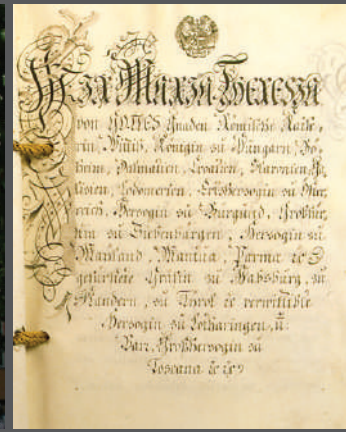 Wir Maria Theresia
von GOTTES Gnaden Römische Kaise,
rin, Wittib, Königin zu Hungarn, Bö,
heim, Dalmatien, Croatien, Slavonien, Ga,
lizien, Lodomerien, Erzherzogin zu Oester,
reich, Herzogin zu Burgund, Großfür,
stin zu Siebenbürgen, Herzogin zu
Mayland, Mantua, Parma ic
gefürstete Gräfin zu Habsburg, zu
Flandern, zu Tyrol ic verwittibte
Herzogin zu Lotharingen, ü:
Barr, Großherzogin zu
Toscana ic ic